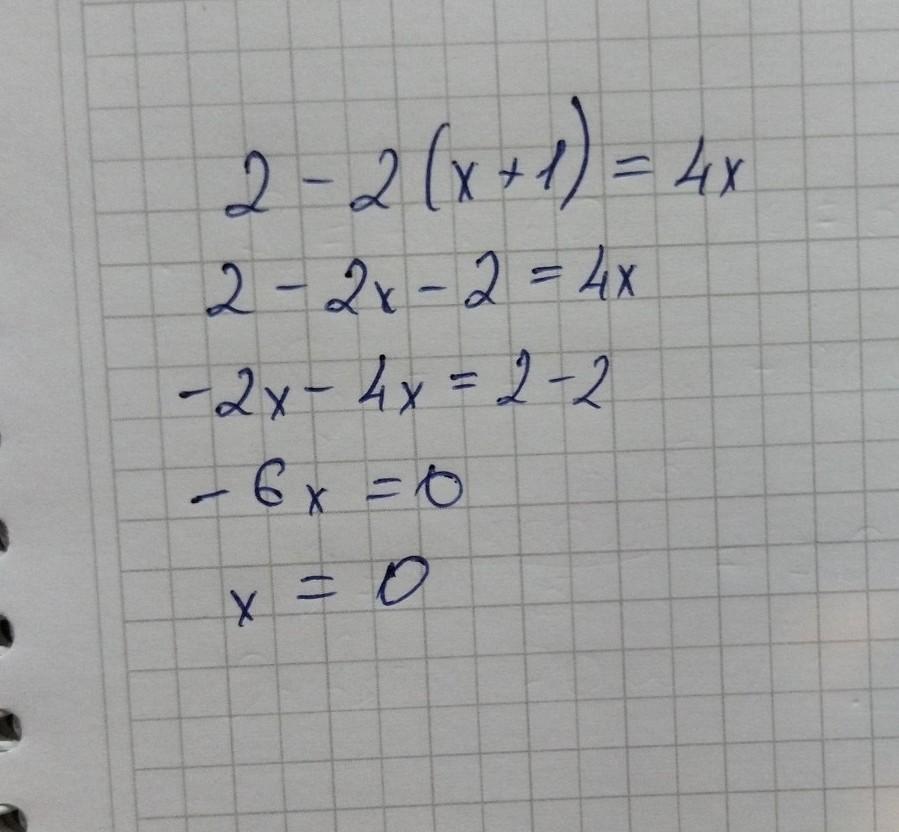 2 - 2(x+1) = 4x
2 - 2x - 2 = 4x
-2x - 4x = 2 - 2
-6x = 0
x = 0